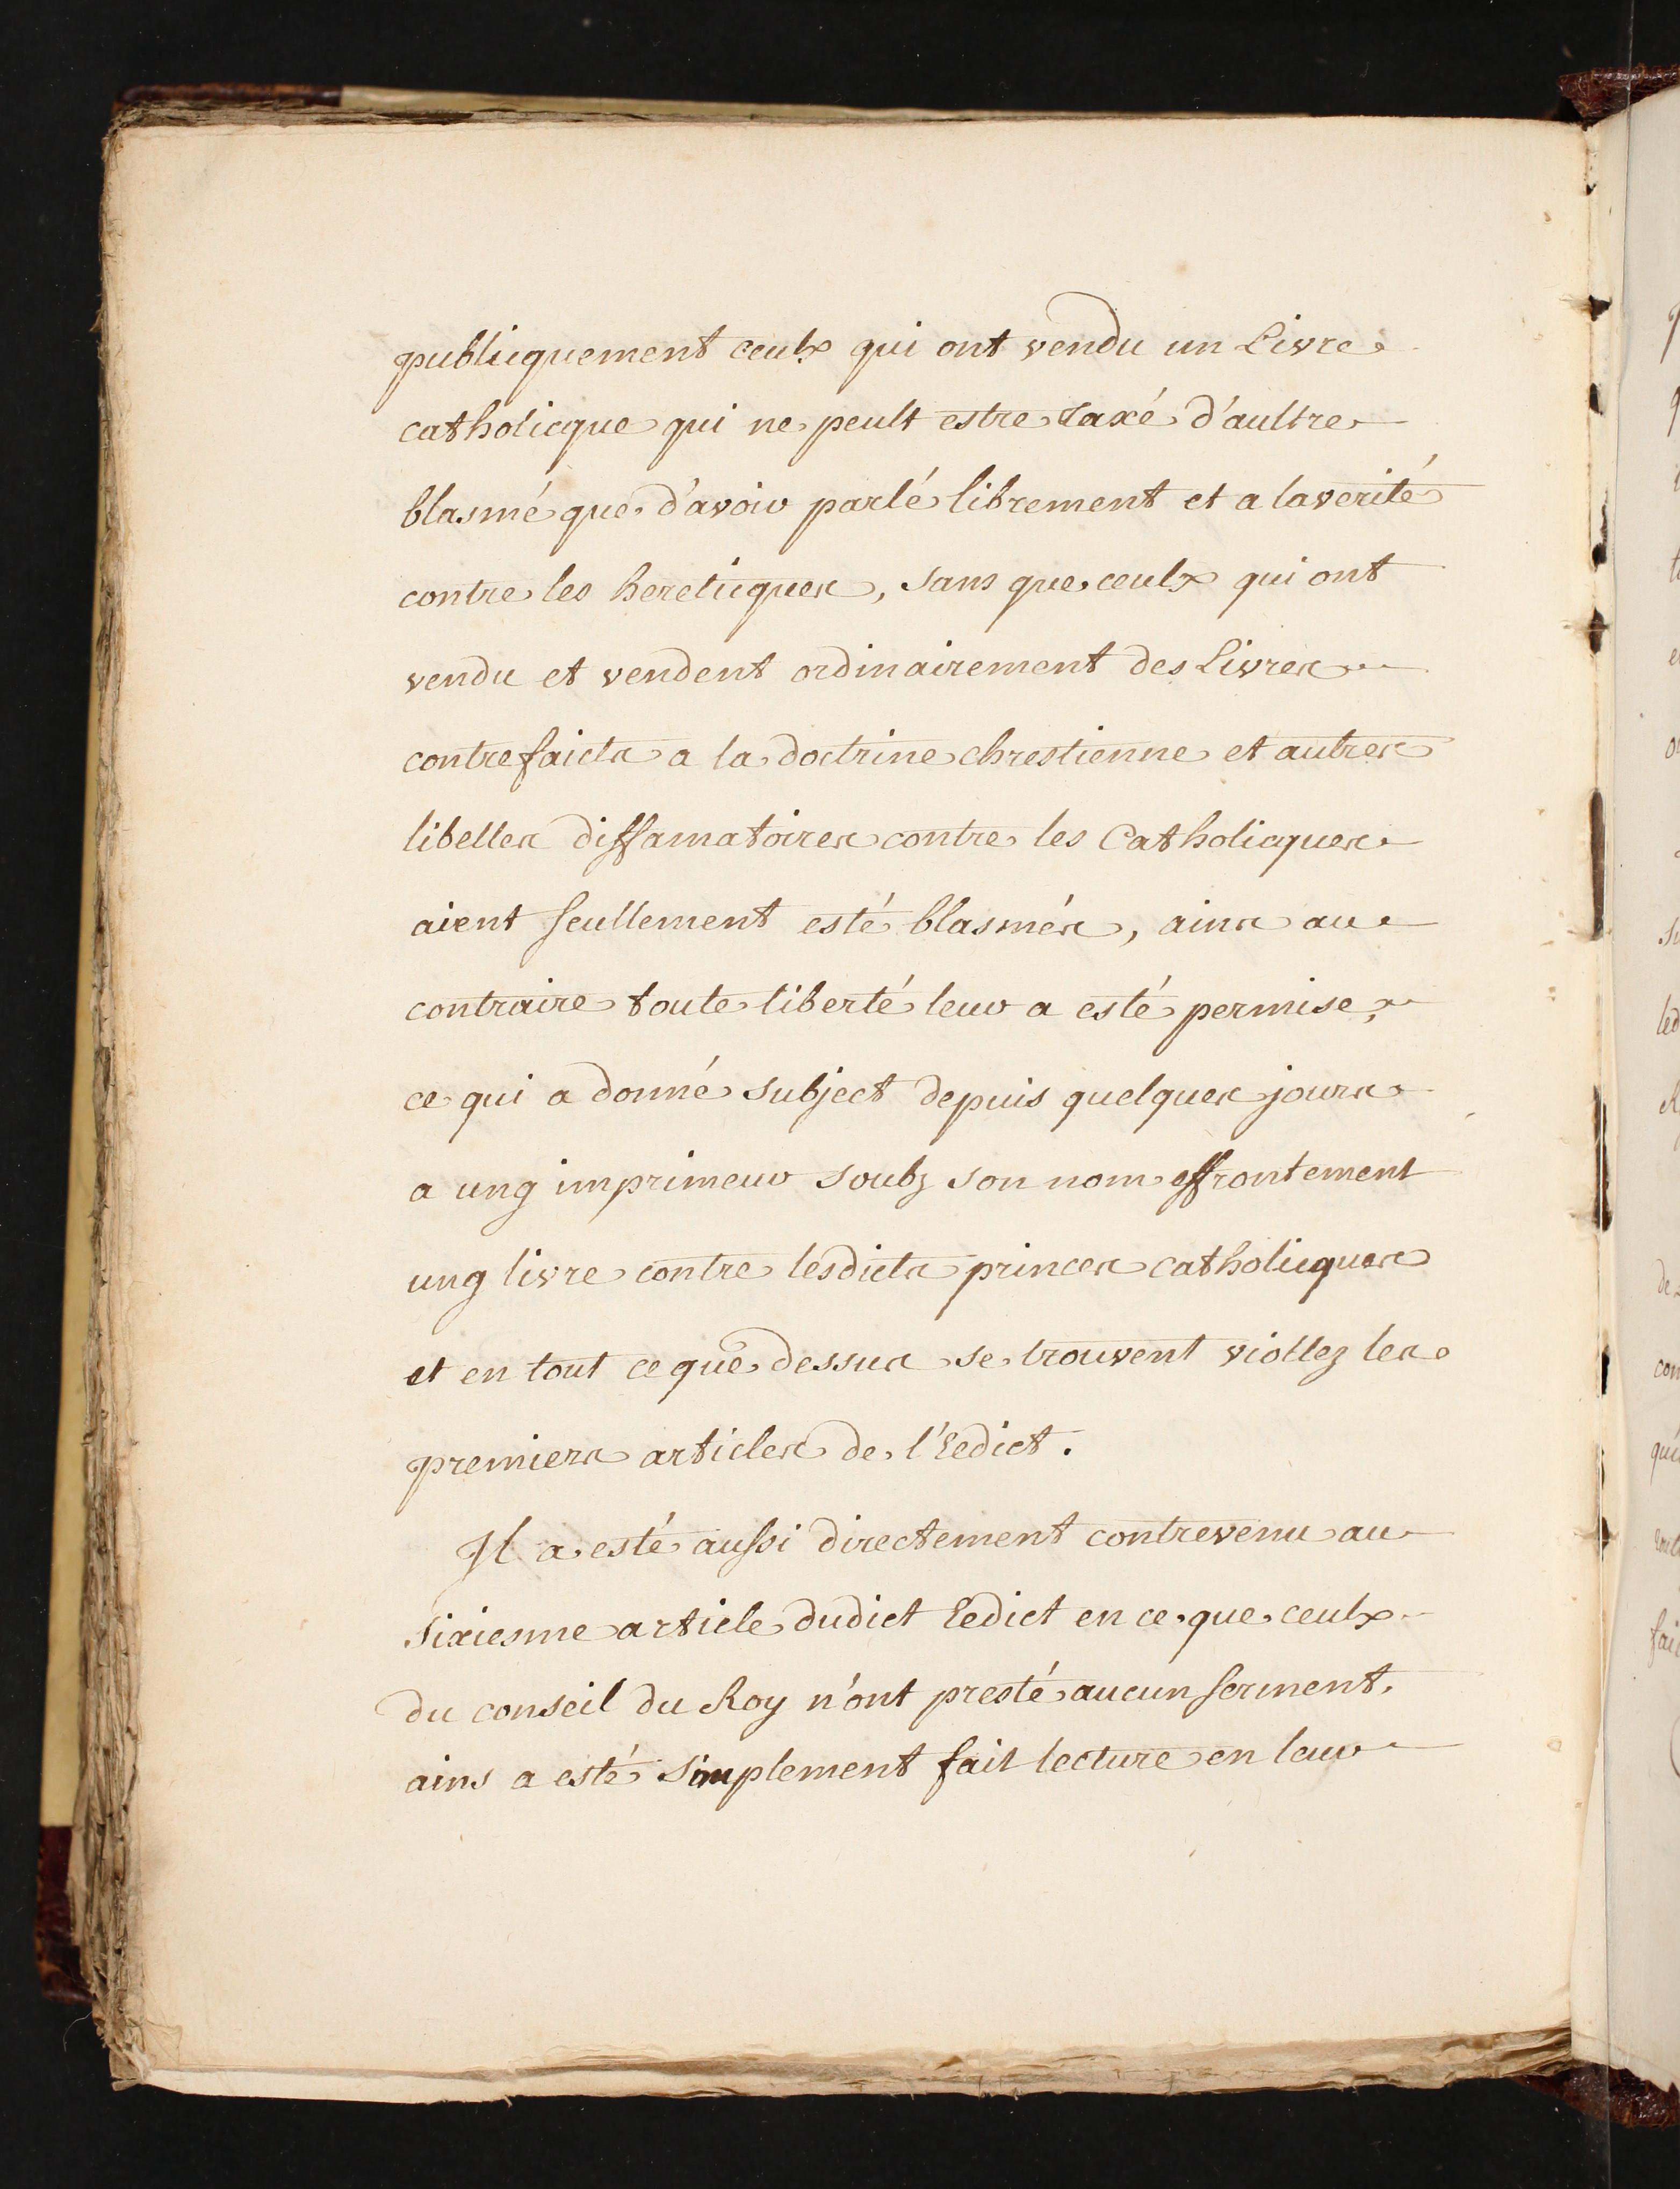 publicquement ceulx qui ont vendu un Livre
catholicque qui ne peult estre taxé d'aultre
blasmé que d'avoir parlé librement et a la verité
contre les hereticques, sans que ceulx qui ont
vendu et vendent ordinairement des Livres
contrefaicts a la doctrine chrestienne et autres
libelles diffamatoires contre les Catholicques
aient seullement esté blasmés, ains au
contraire toute liberté leur a esté permise,
ce qui a donné subject depuis quelques jours
a ung imprimeur soubz son nom effrontement
ung livre contre lesdicts princes catholicques
et en tout ce que dessus se trouvent viollez les
premiers articles de l'Eedict.
Il a esté aussi directement contrevenu au
sixiesme article dudict Eedict en ce que ceulx
du conseil du Roy n'ont presté aucun serment,
ains a esté simplement fait lecture en leur